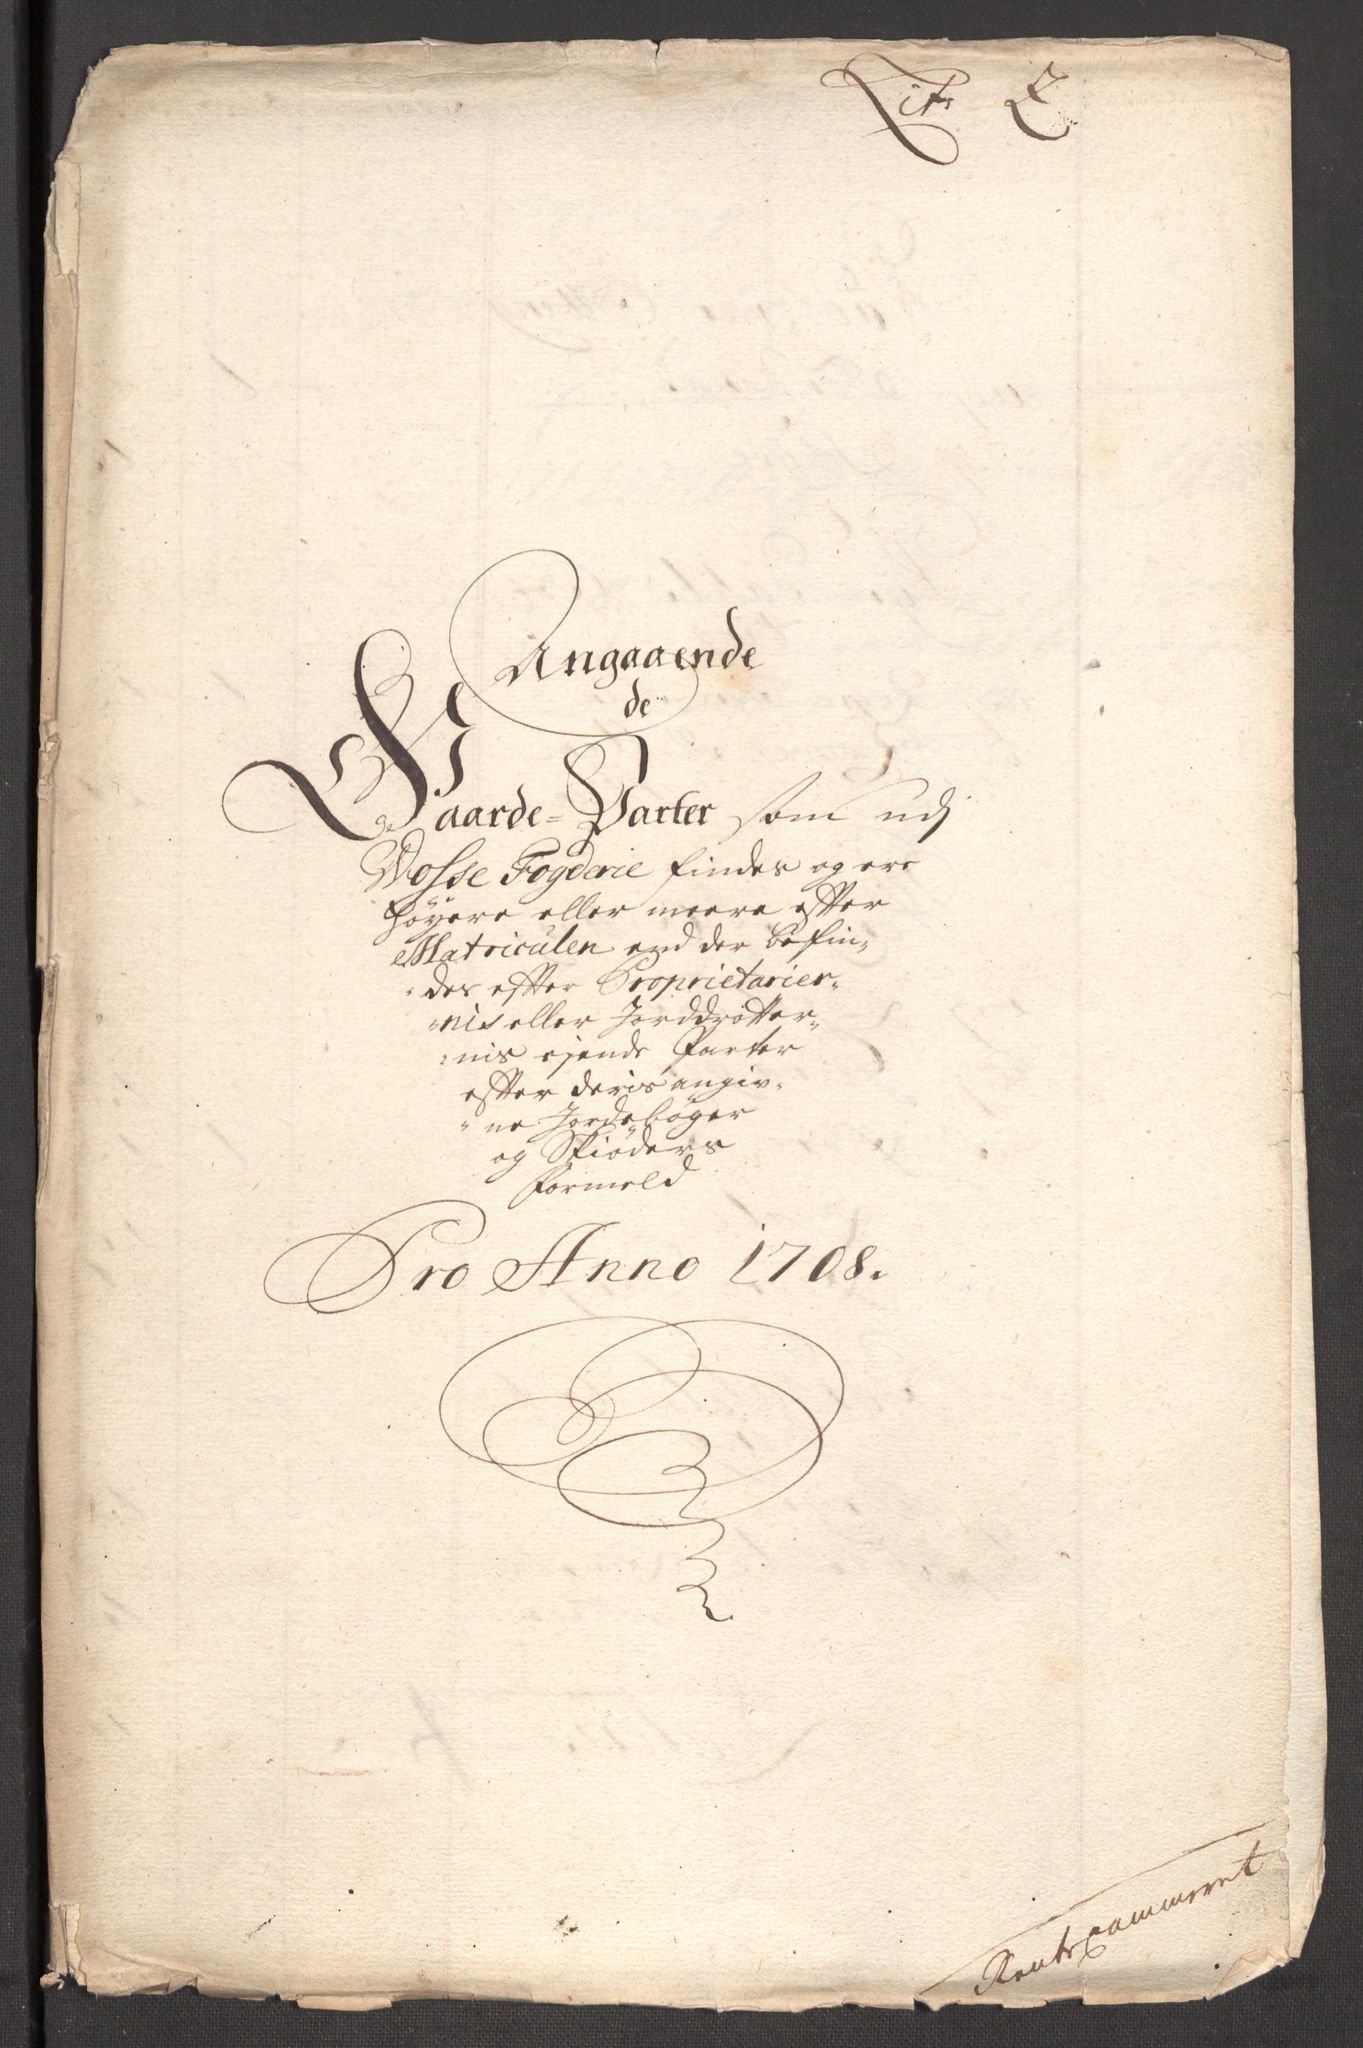 Litr
Angaaende
de
Gaarde-Parter som udj
Vosse Fogderie findes og ere
höyere eller meere efter
Matriculen end der befin-
des efter Proprietarier-
nis eller Jorddrotter-
nis ejende Parter
efter deris angiv-
ne Jordebøger
og Skiöders
Formeld
Pro Anno 1708.
Rentecammeret